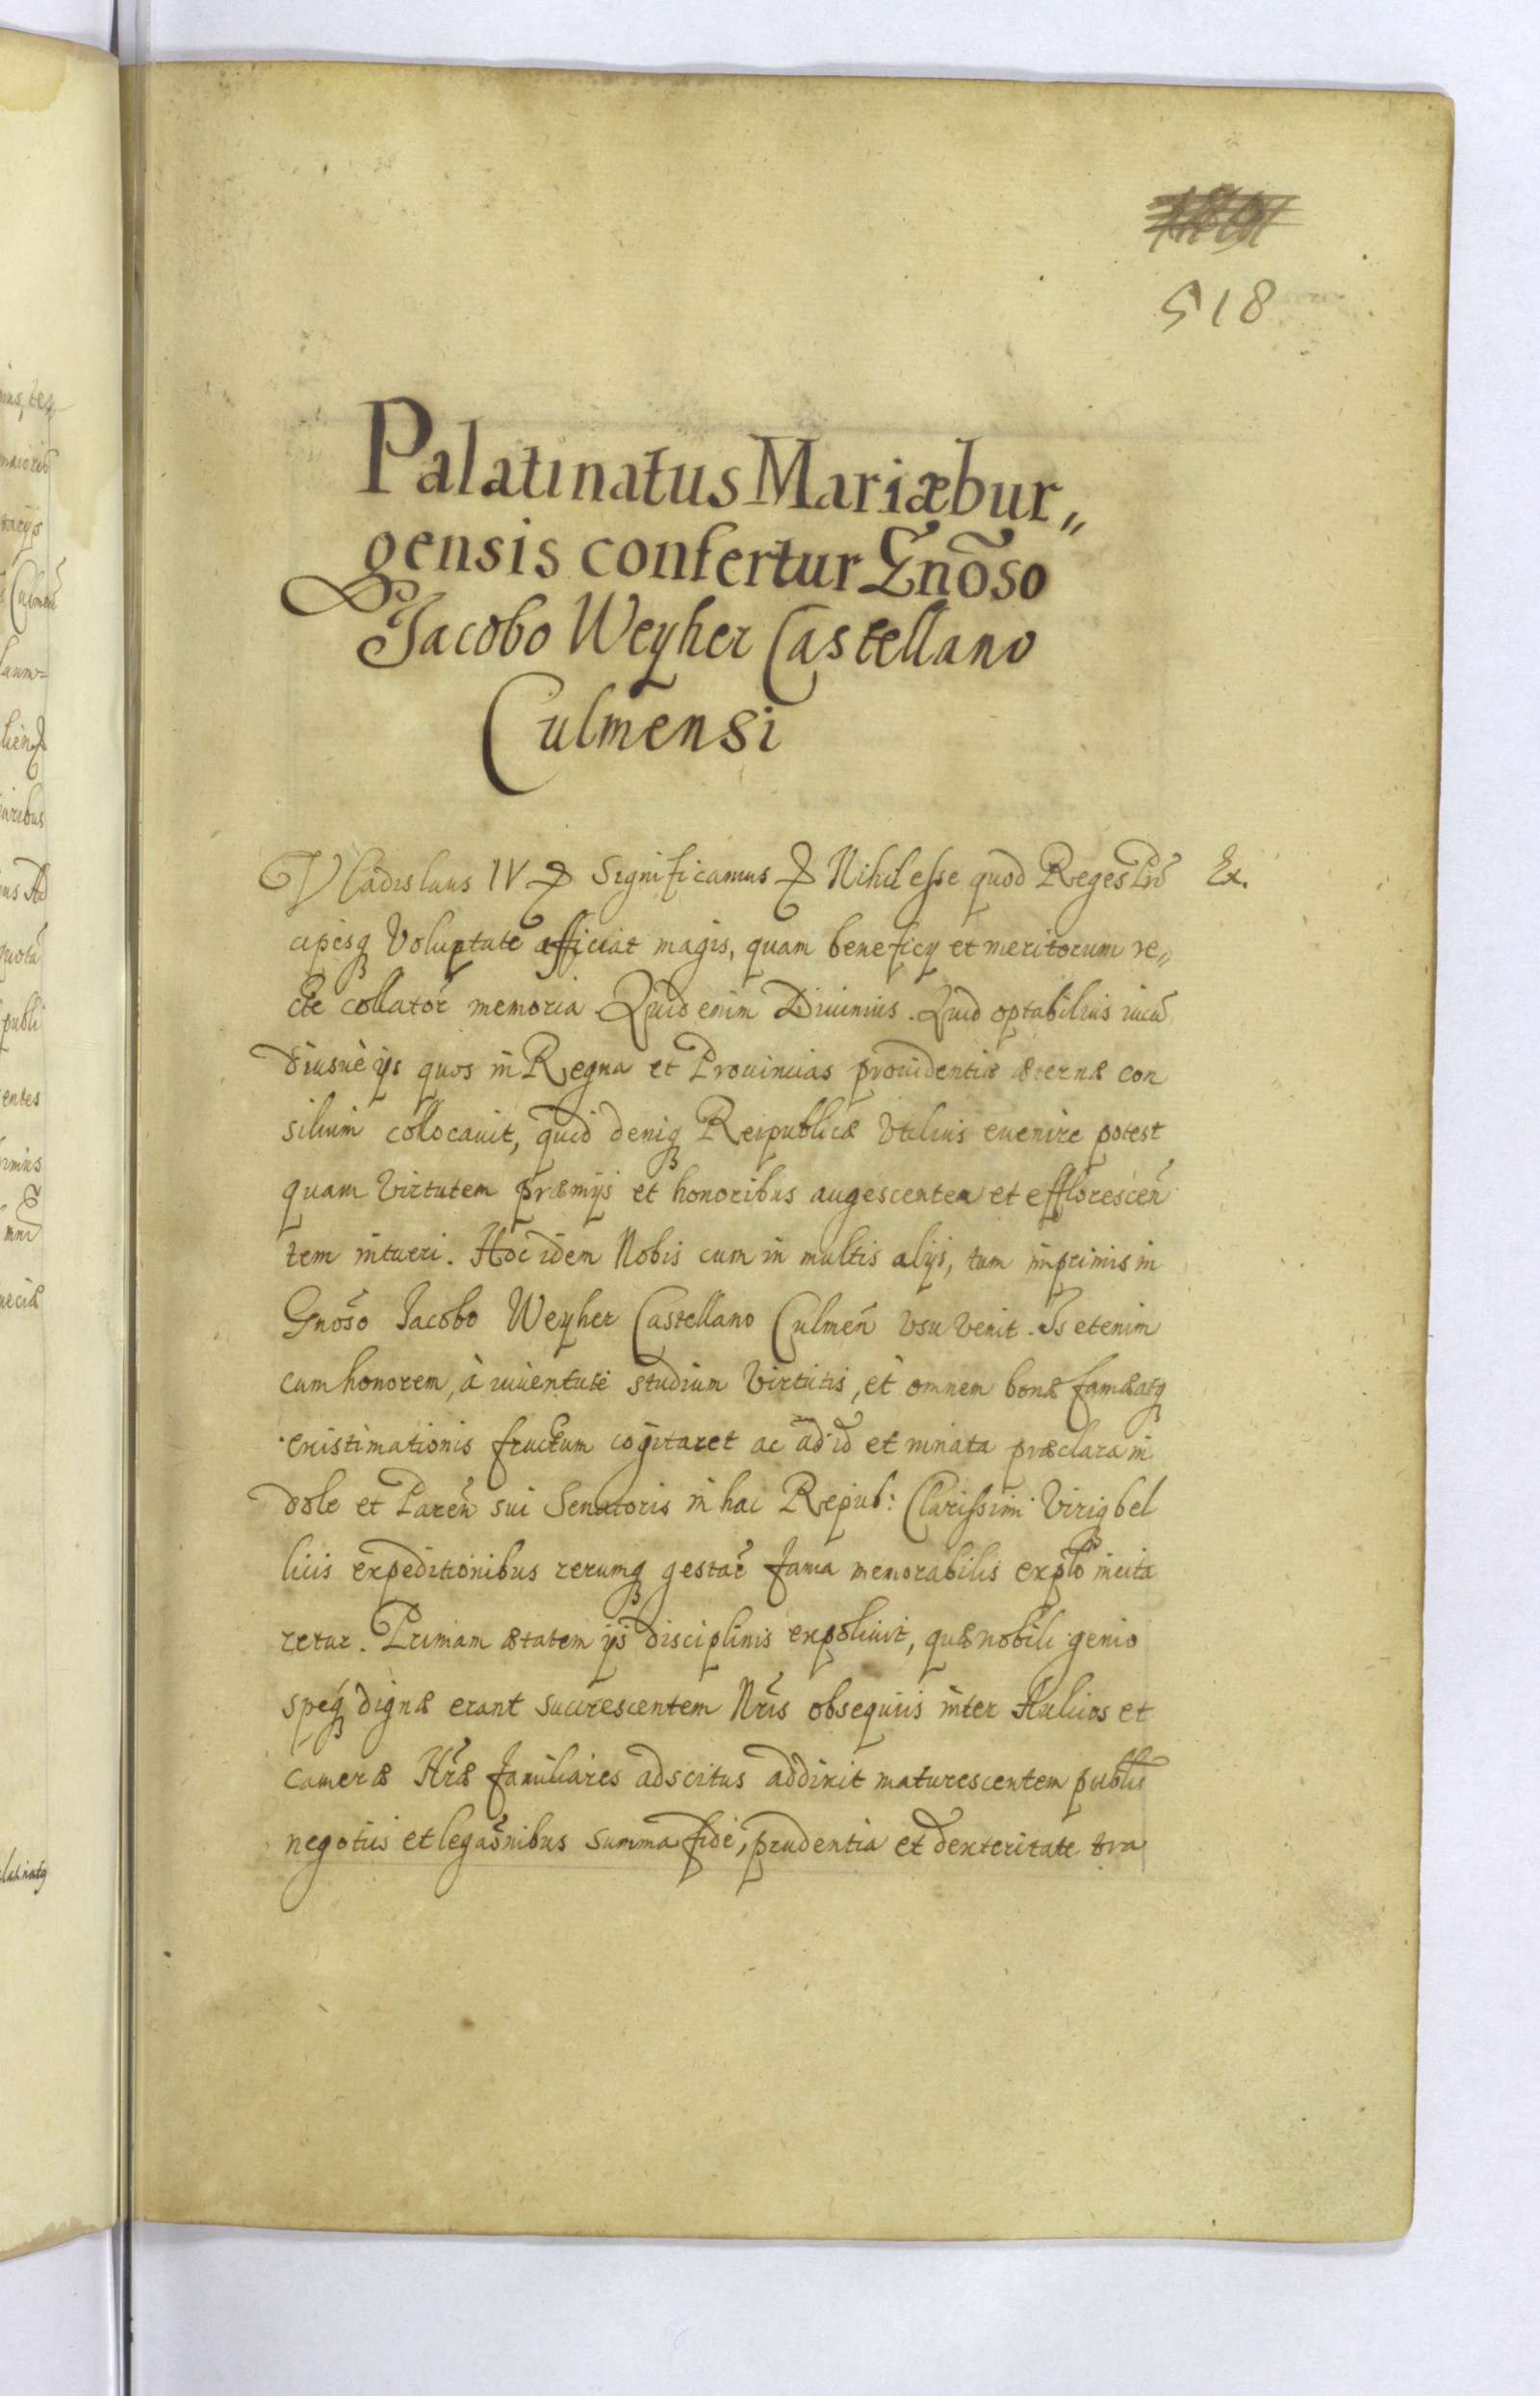 518
Palatinatus Mariæbur„
gensis confertur Gnõso
Jacobo Weyher Castellano
Culmensi
Vladislaus IV Significamus Nihil esse quod Reges Prĩ Ex.
cipesq Voluptate afficiat magis, quam beneficy et meritorum re„
cte collator̃ memoria Quid enim Diuinius. Quid optabilius iucũ
diusue ijs quos in Regna et Prouincias prouidentiæ æternæ con
silium collocauit, quid deniq Reipublicæ Vtilius euenire potest
quam Virtutem præmijs et honoribus augescentem et efflorescen̄
tem intueri. Hoc idem Nobis cum in multis alijs, tum inprimis in
Gnõso Jacobo Weyher Castellano Culmen̄ Vsu Venit. Is etenim
cum honorem, à iuuentute studium Virtutis, et omnem bonæ famæ atq
existimationis fructum cogitaret ac ad id et innata præclara in
dole et Paren̄ sui Senatoris in hac Repub: Clarissimi Viriq bel
licis expeditionibus rerumq gestar̃ fama memorabilis explõ incita
retur. Primam ætatem ijs disciplinis expoliuit, quæ nobili genio
speq dignæ erant succrescentem Nr̃is obsequiis inter Aulicos et
cameræ Nr̃æ familiares adscitus addixit maturescentem publis
negotiis et legaõnibus summa fide, prudentia et dexteritate tra